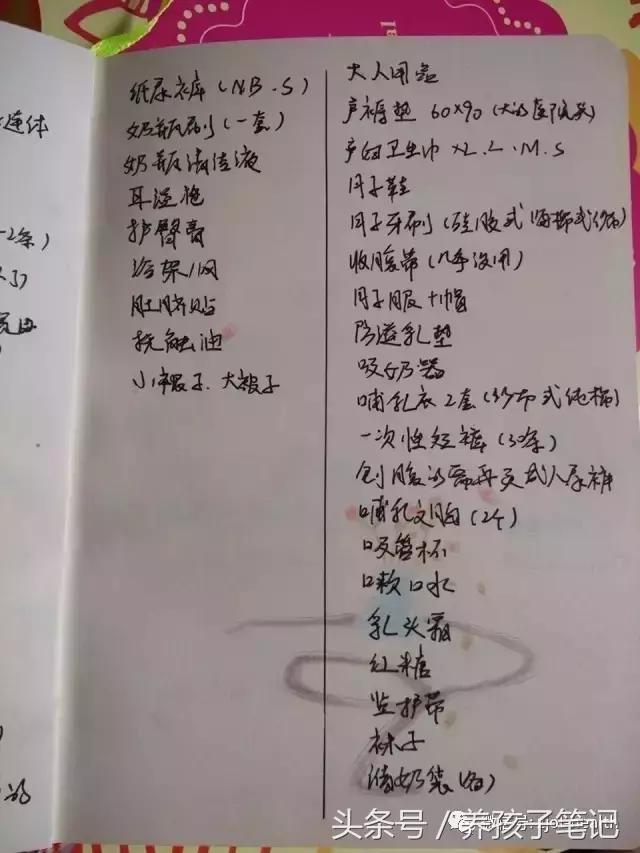 连体
-2条)
纸尿裤(NB.S)
奶瓶刷(一套)
奶瓶清洁液
耳温枪
护臀膏
浴架/网
肚脐贴
抚触油
小被子.大被子
大人用品
产褥垫 60×90(大的医院买)
产妇卫生巾 XL.L.M.S
月子鞋
月子牙刷(硅胶式 海棉式 纱布)
收腹带(几乎没用)
月子服+帽
防溢乳垫
吸奶器
哺乳衣2套(纱布式纯棉)
一次性短裤(30条)
剖腹的需再买成人尿裤
哺乳文胸(2个)
吸管杯
漱口水
乳头霜
红糖
监护带
袜子
储奶袋
头条号/养孩子笔记